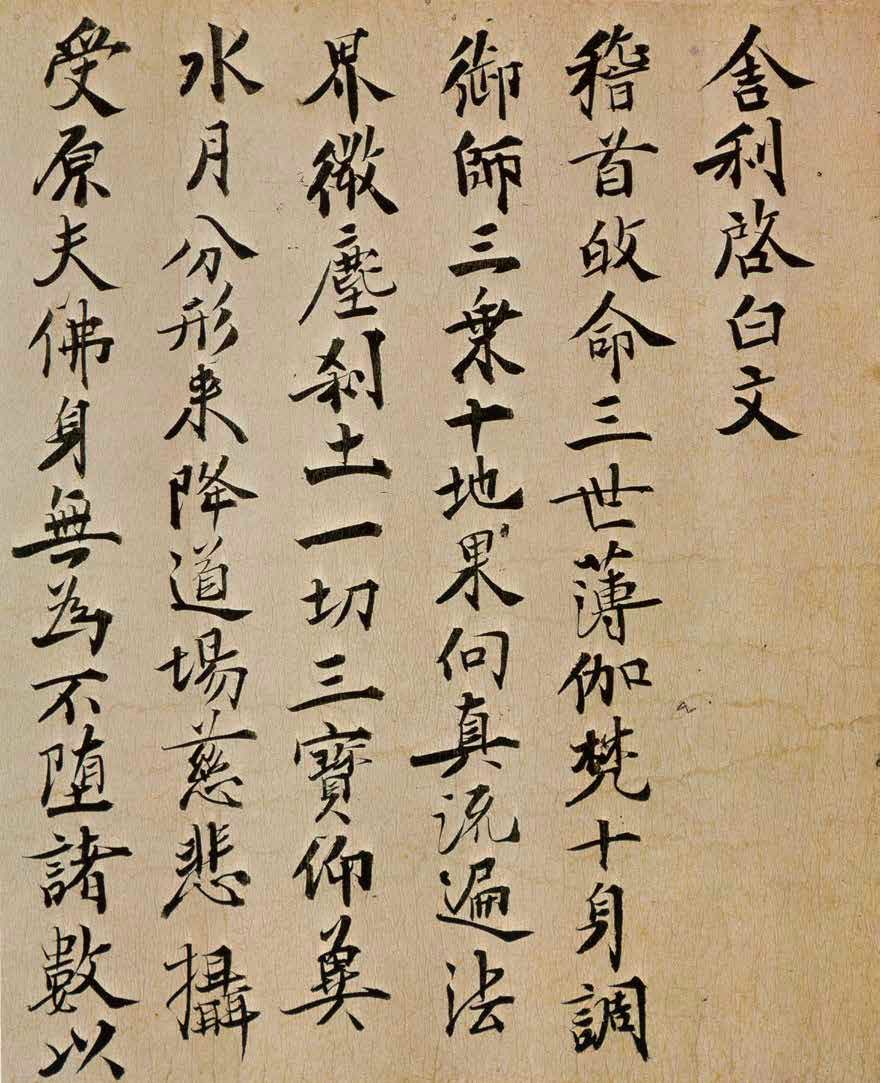 舎利啓白文
稽首皈命三世薄伽梵十身調
御師三乗十地果向真流遍法
界微塵刹土一切三寳仰奠
水月分形来降道場慈悲攝
受原夫佛身無為不堕諸數以